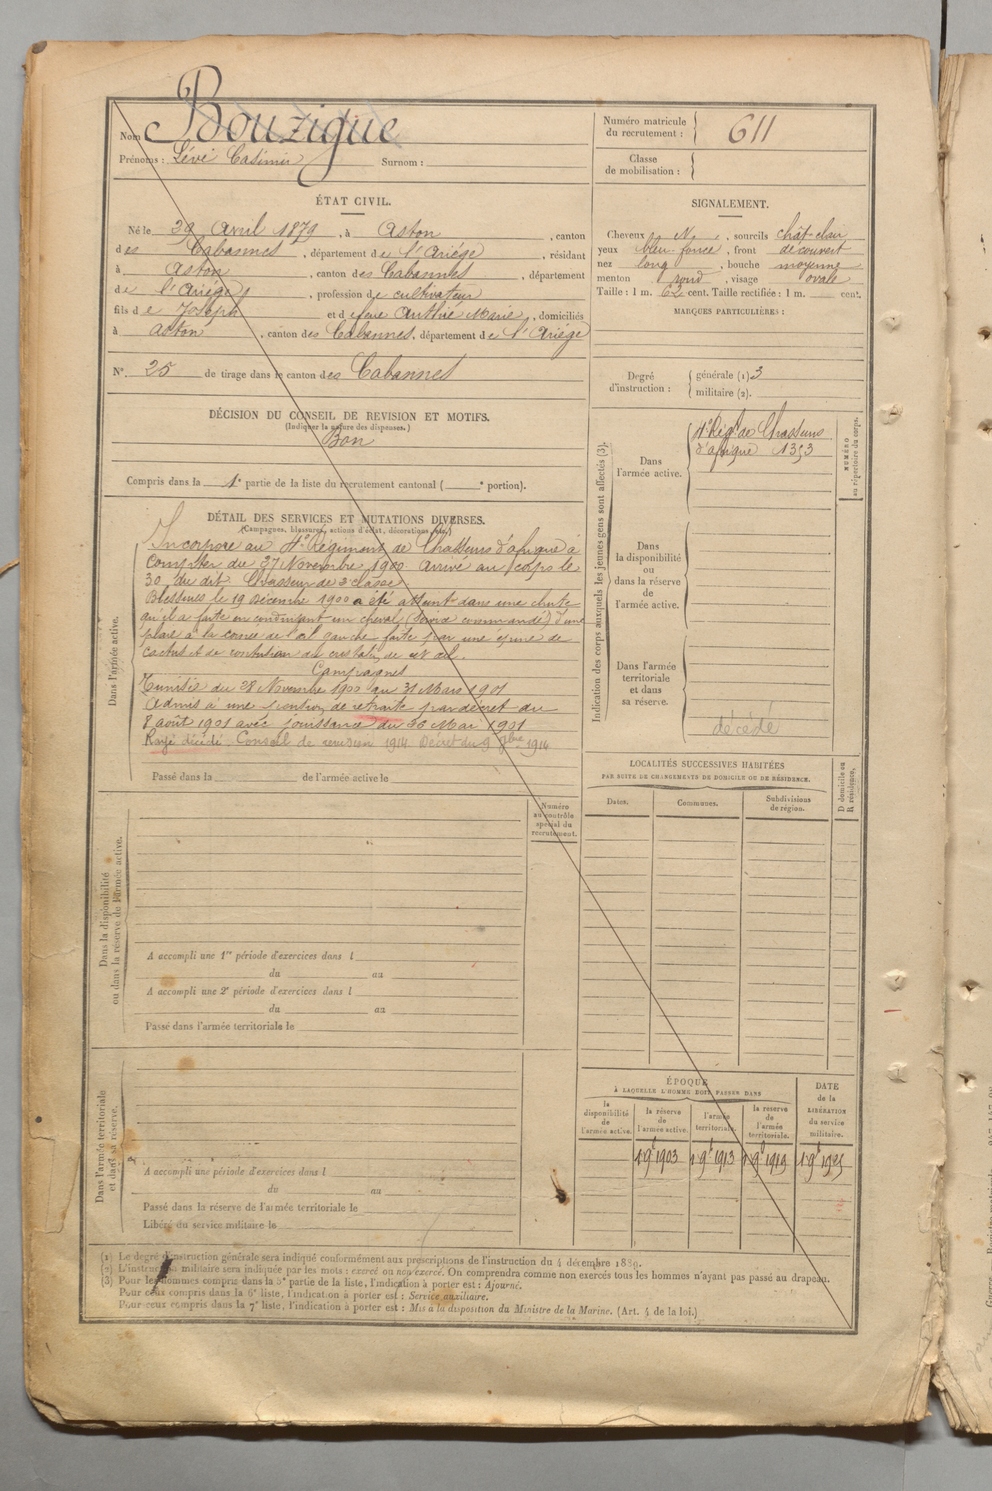 Nom Bouzigue
Prénoms : Lévi Casimir Surnom :
Numéro matricule
du recrutement : 611
Classe
de mobilisation :
ÉTAT CIVIL.
Né le 29 Avril 1879, à Aston, canton
des Cabannes, département de l'Ariège, résidant
à Aston, canton des Cabannes, département
de l'Ariège, profession de cultivateur
fils de Joseph et de feue Authie Marie, domiciliés
à Aston, canton des Cabannes, département de l'Ariège
N° 25 de tirage dans le canton des Cabannes
DÉCISION DU CONSEIL DE REVISION ET MOTIFS.
(Indiquer la nature des dispenses.)
Bon
Compris dans la 1e partie de la liste du recrutement cantonal ( e portion).
SIGNALEMENT.
Cheveux N, sourcils chât clair
yeux bleu foncé, front découvert
nez long, bouche moyenne
menton rond, visage ovale
Taille : 1 m. 62 cent. Taille rectifiée : 1 m. cent.
MARQUES PARTICULIÈRES :
Degré
d'instruction :
générale (1) 3
militaire (2).
DÉTAIL DES SERVICES ET MUTATIONS DIVERSES.
(Campagnes, blessures, actions d'éclat, décorations, etc.)
Dans l'armée active.
Incorporé au 4e Régiment de Chasseurs d'afrique à
compter du 27 Novembre 1900. Arrivé au corps le
30 du dit. Chasseur de 2e classe.
Blessures le 19 Décembre 1900 a été atteint dans une chute
qu'il a faite en conduisant un cheval (service commandé) d'une
plaie à la cornée de l'œil gauche faite par une épine de
cactus et de contusion du cristallin de cet œil.
Campagnes
Tunisie du 28 Novembre 1900 au 31 Mars 1901
Admis à une pension de retraite par décret du
8 août 1901 avec jouissance du 26 Mai 1901
Rayé décédé. Conseil de revision 1914 Décret du 9 7bre 1914
Passé dans la de l'armée active le
Indication des corps auxquels les jeunes gens sont affectés (3).
Dans
l'armée active.
4e Régt de Chasseurs
d'afrique 1353
NUMÉRO
au répertoire du corps.
Dans
la disponibilité
ou
dans la réserve
de
l'armée active.
Dans l'armée
territoriale
et dans
sa réserve.
décédé
LOCALITÉS SUCCESSIVES HABITÉES
PAR SUITE DE CHANGEMENTS DE DOMICILE OU DE RÉSIDENCE.
Dates. Communes. Subdivisions
de région.
D domicile ou
R résidence.
Dans la disponibilité
ou dans la réserve de l'armée active.
Numéro
au contrôle
spécial du
recrutement.
A accompli une 1re période d'exercices dans l
du au
A accompli une 2e période d'exercices dans l
du au
Passé dans l'armée territoriale le
Dans l'armée territoriale
et dans sa réserve.
A accompli une période d'exercices dans l
du au
Passé dans la réserve de l'armée territoriale le
Libéré du service militaire le
ÉPOQUE
À LAQUELLE L'HOMME DOIT PASSER DANS
la
disponibilité
de
l'armée active.
la réserve
de
l'armée active.
l'armée
territoriale.
la réserve
de
l'armée
territoriale.
DATE
de la
LIBÉRATION
du service
militaire.
1 9bre 1903 1 9bre 1913 1 9bre 1919 1 9bre 1925
(1) Le degré d'instruction générale sera indiqué conformément aux prescriptions de l'instruction du 4 décembre 1889.
(2) L'instruction militaire sera indiquée par les mots : exercé ou non exercé. On comprendra comme non exercés tous les hommes n'ayant pas passé au drapeau.
(3) Pour les hommes compris dans la 5e partie de la liste, l'indication à porter est : Ajourné.
Pour ceux compris dans la 6e liste, l'indication à porter est : Service auxiliaire.
Pour ceux compris dans la 7e liste, l'indication à porter est : Mis à la disposition du Ministre de la Marine. (Art. 4 de la loi.)